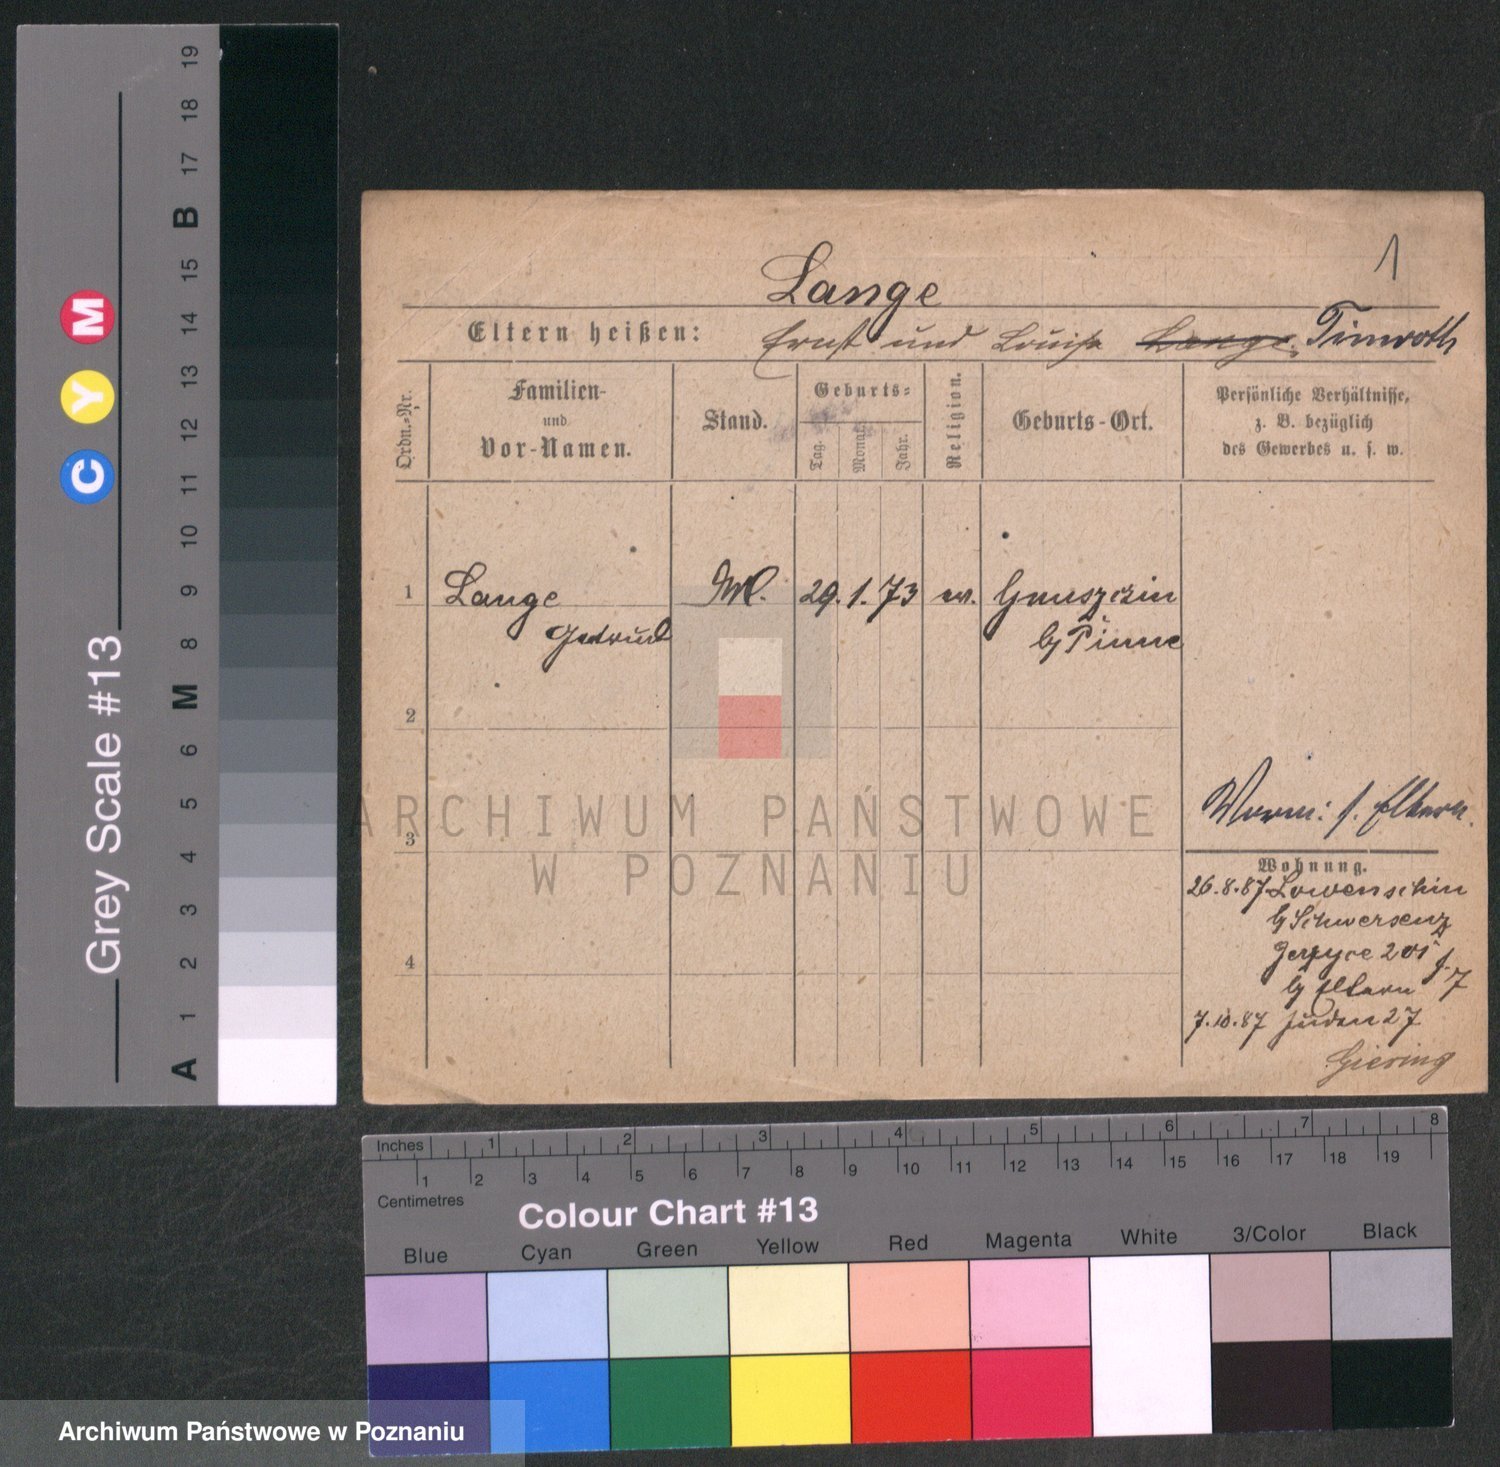 1
Lange
Eltern heißen: Ernst und Louise Lange Timroth
Ordn.-Nr.
Familien- und Vor-Namen.
Stand.
Geburts:
Tag. Monat. Jahr.
Religion.
Geburts-Ort.
Persönliche Verhältnisse, z. B. bezüglich des Gewerbes u. s. w.
1 Lange M. 29. 1. 73 ev. Gnuszczin
Gertrud b/ Pinne
2
3
4
Wohnung.
26.8.87 Lowenschin
b/ Schwersenz
Jerzyce 201
b/ Eltern
7.10.87 Juden 27
Giering
ARCHIWUM PAŃSTWOWE
W POZNANIU
Grey Scale #13
C Y M
A 1 2 3 4 5 6 M 8 9 10 11 12 13 14 15 B 17 18 19
Inches 1 2 3 4 5 6 7 8
1 2 3 4 5 6 7 8 9 10 11 12 13 14 15 16 17 18 19
Centimetres
Colour Chart #13
Blue Cyan Green Yellow Red Magenta White 3/Color Black
Archiwum Państwowe w Poznaniu